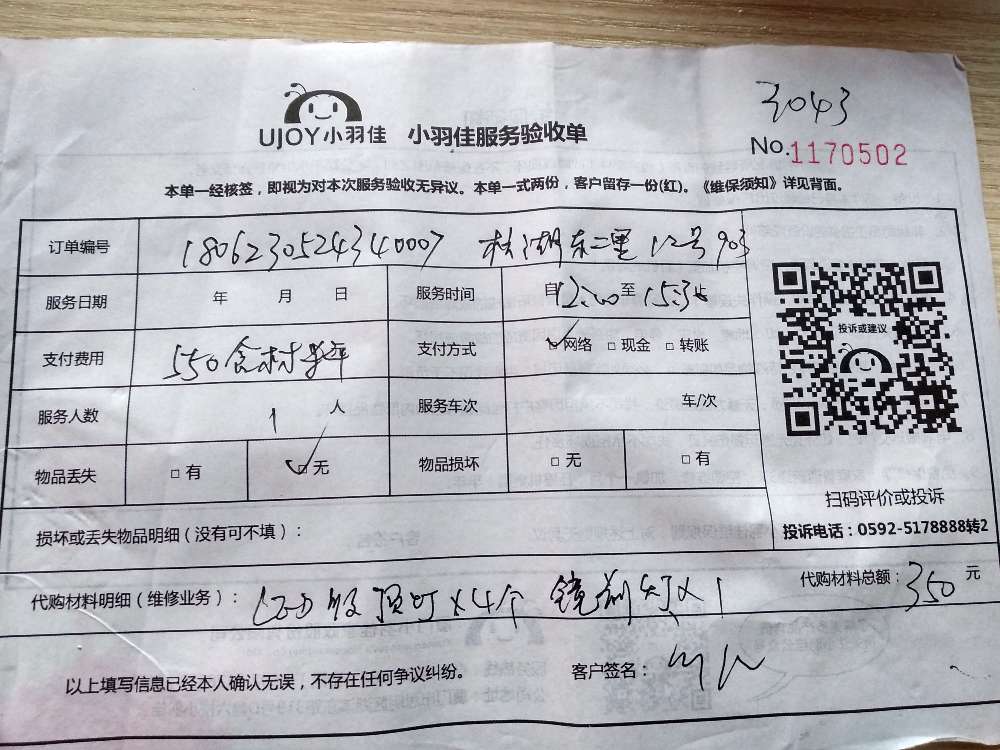 3043
UJOY小羽佳 小羽佳服务验收单
No.1170502
本单一经核签，即视为对本次服务验收无异议。本单一式两份，客户留存一份(红)。《维保须知》详见背面。
订单编号 1806230524340007 湖东二里12号903
服务日期 年 月 日 服务时间 自12:00至15:3止
支付费用 550含材 支付方式 ☑网络 □现金 □转账
服务人数 1人 服务车次 车/次
物品丢失 □有 ☑无 物品损坏 □无 □有
投诉或建议
扫码评价或投诉
投诉电话：0592-5178888转2
损坏或丢失物品明细(没有可不填)：
代购材料明细(维修业务)：LED吸顶灯x4个 镜前灯x1 代购材料总额：350元
以上填写信息已经本人确认无误，不存在任何争议纠纷。 客户签名：